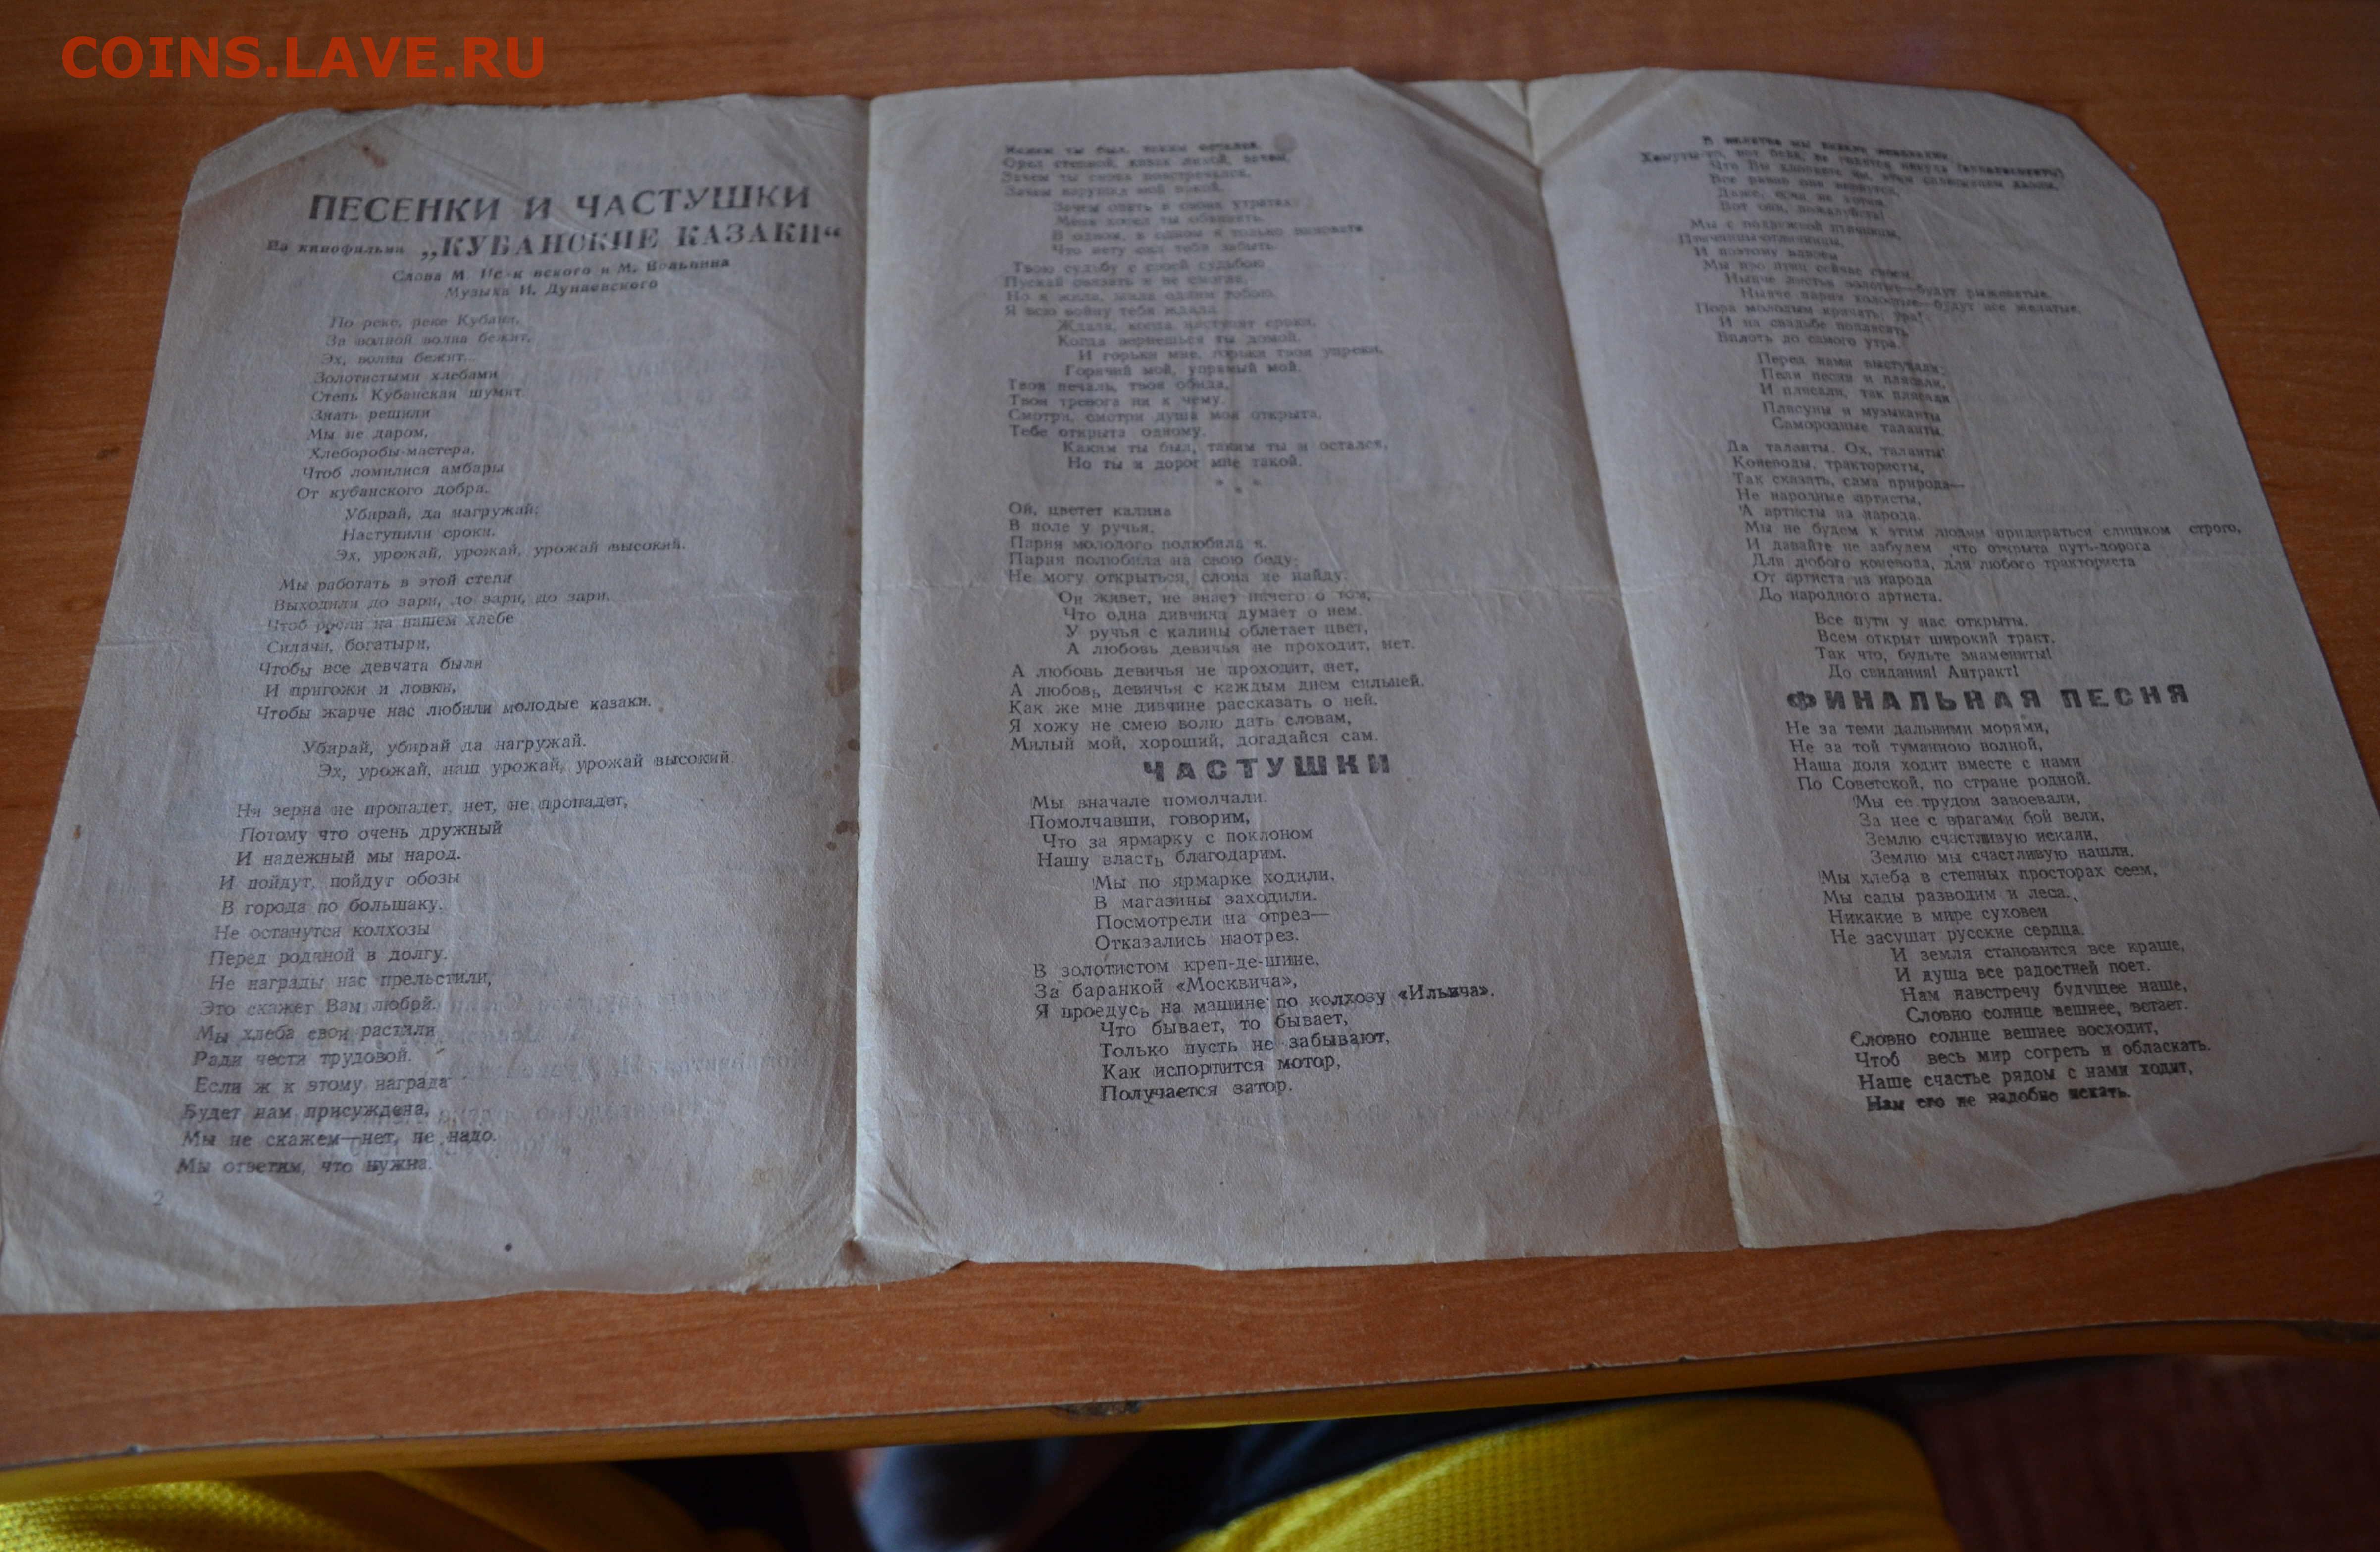 COINS.LAVE.RU
ПЕСЕНКИ И ЧАСТУШКИ
Из кинофильма „КУБАНСКИЕ КАЗАКИ“
Слова М. и М. Вольпина
Музыка И. Дунаевского
По реке, реке Кубани,
За волной волна бежит,
Эх, волна бежит...
Золотистыми хлебами
Степь Кубанская шумит
Знать решили
Мы не даром,
Хлеборобы-мастера,
Чтоб ломилися амбары
От кубанского добра.
Убирай, да нагружай:
Наступили сроки.
Эх, урожай, урожай, урожай высокий.
Мы работать в этой степи
Выходили до зари, до зари, до зари,
Чтоб росли на нашем хлебе
Силачи, богатыри,
Чтобы все девчата были
И пригожи и ловки,
Чтобы жарче нас любили молодые казаки.
Убирай, убирай да нагружай.
Эх, урожай, наш урожай, урожай высокий.
Ни зерна не пропадет, нет, не пропадет,
Потому что очень дружный
И надежный мы народ.
И пойдут, пойдут обозы
В города по большаку.
Не останутся колхозы
Перед родиной в долгу.
Не награды нас прельстили,
Это скажет Вам любой.
Мы хлеба свои растили
Ради чести трудовой.
Если ж к этому награда
Будет нам присуждена,
Мы не скажем—нет, не надо.
Мы ответим, что нужна.
2
Каким ты был, таким остался,
Орел степной, казак лихой, зачем,
Зачем ты снова повстречался,
Зачем нарушил мой покой.
Зачем опять в своих утратах
Меня хотел ты обвинить.
В одном, в одном я только виновата
Что нету сил тебя забыть.
Твою судьбу с своей судьбою
Пускай связать я не смогла,
Но я жила, жила одним тобою,
Я всю войну тебя ждала.
Ждала, когда наступят сроки,
Когда вернешься ты домой.
И горьки мне, горьки твои упреки,
Горячий мой, упрямый мой.
Твоя печаль, твоя обида,
Твоя тревога ни к чему.
Смотри, смотри душа моя открыта,
Тебе открыта одному.
Каким ты был, таким ты и остался,
Но ты и дорог мне такой.
* * *
Ой, цветет калина
В поле у ручья.
Парня молодого полюбила я.
Парня полюбила на свою беду:
Не могу открыться, слова не найду.
Он живет, не знает ничего о том,
Что одна дивчина думает о нем.
У ручья с калины облетает цвет,
А любовь девичья не проходит, нет.
А любовь девичья не проходит, нет,
А любовь девичья с каждым днем сильней.
Как же мне дивчине рассказать о ней.
Я хожу не смею волю дать словам,
Милый мой, хороший, догадайся сам.
ЧАСТУШКИ
Мы вначале помолчали.
Помолчавши, говорим,
Что за ярмарку с поклоном
Нашу власть благодарим.
Мы по ярмарке ходили,
В магазины заходили.
Посмотрели на отрез—
Отказались наотрез.
В золотистом креп-де-шине,
За баранкой «Москвича»,
Я проедусь на машине по колхозу «Ильича».
Что бывает, то бывает,
Только пусть не забывают,
Как испортится мотор,
Получается затор.
Все равно они вернутся,
Даже, если не хотим,
Вот они, пожалуйста!
Мы с подружкой птичницы,
Птичницы-отличницы,
И поэтому вдвоем
Мы про птиц сейчас споем.
Нынче листья золотые—будут рыжеватые,
Нынче парни холостые—будут все женатые.
Пора молодым кричать: ура!
И на свадьбе поплясать
Вплоть до самого утра.
Перед нами выступали:
Пели песни и плясали,
И плясали, так плясали
Плясуны и музыканты
Самородные таланты.
Да таланты. Ох, таланты!
Коневоды, трактористы,
Так сказать, сама природа—
Не народные артисты,
А артисты из народа.
Мы не будем к этим людям придираться слишком строго,
И давайте не забудем что открыта путь-дорога
Для любого коневода, для любого тракториста
От артиста из народа
До народного артиста.
Все пути у нас открыты.
Всем открыт широкий тракт.
Так что, будьте знамениты!
До свидания! Антракт!
ФИНАЛЬНАЯ ПЕСНЯ
Не за теми дальними морями,
Не за той туманною волной,
Наша доля ходит вместе с нами
По Советской, по стране родной.
Мы ее трудом завоевали,
За нее с врагами бой вели,
Землю счастливую искали,
Землю мы счастливую нашли.
Мы хлеба в степных просторах сеем,
Мы сады разводим и леса.
Никакие в мире суховеи
Не засушат русские сердца.
И земля становится все краше,
И душа все радостней поет.
Нам навстречу будущее наше,
Словно солнце вешнее, встает.
Словно солнце вешнее восходит,
Чтоб весь мир согреть и обласкать.
Наше счастье рядом с нами ходит,
Нам его не надобно искать.